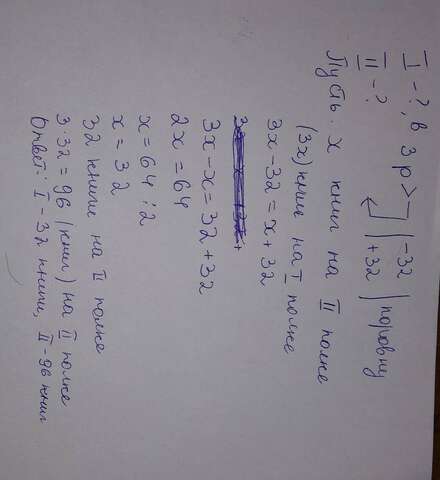 I - ?, в 3 р > | -32 | поровну
II - ? | +32
Пусть x книг на II полке
(3x) книг на I полке
3x - 32 = x + 32
3x - x = 32 + 32
2x = 64
x = 64 : 2
x = 32
32 книги на II полке
3 · 32 = 96 (книг) на II полке
Ответ: I - 32 книги, II - 96 книг